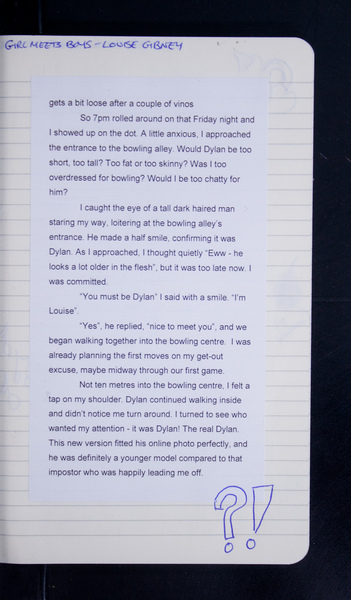 GIRL MEETS BOYS - LOUISE GIBNEY
gets a bit loose after a couple of vinos
So 7pm rolled around on that Friday night and
I showed up on the dot. A little anxious, I approached
the entrance to the bowling alley. Would Dylan be too
short, too tall? Too fat or too skinny? Was I too
overdressed for bowling? Would I be too chatty for
him?
I caught the eye of a tall dark haired man
staring my way, loitering at the bowling alley's
entrance. He made a half smile, confirming it was
Dylan. As I approached, I thought quietly "Eww - he
looks a lot older in the flesh", but it was too late now. I
was committed.
"You must be Dylan" I said with a smile. "I'm
Louise".
"Yes", he replied, "nice to meet you", and we
began walking together into the bowling centre. I was
already planning the first moves on my get-out
excuse, maybe midway through our first game.
Not ten metres into the bowling centre, I felt a
tap on my shoulder. Dylan continued walking inside
and didn't notice me turn around. I turned to see who
wanted my attention - it was Dylan! The real Dylan.
This new version fitted his online photo perfectly, and
he was definitely a younger model compared to that
impostor who was happily leading me off.
?!